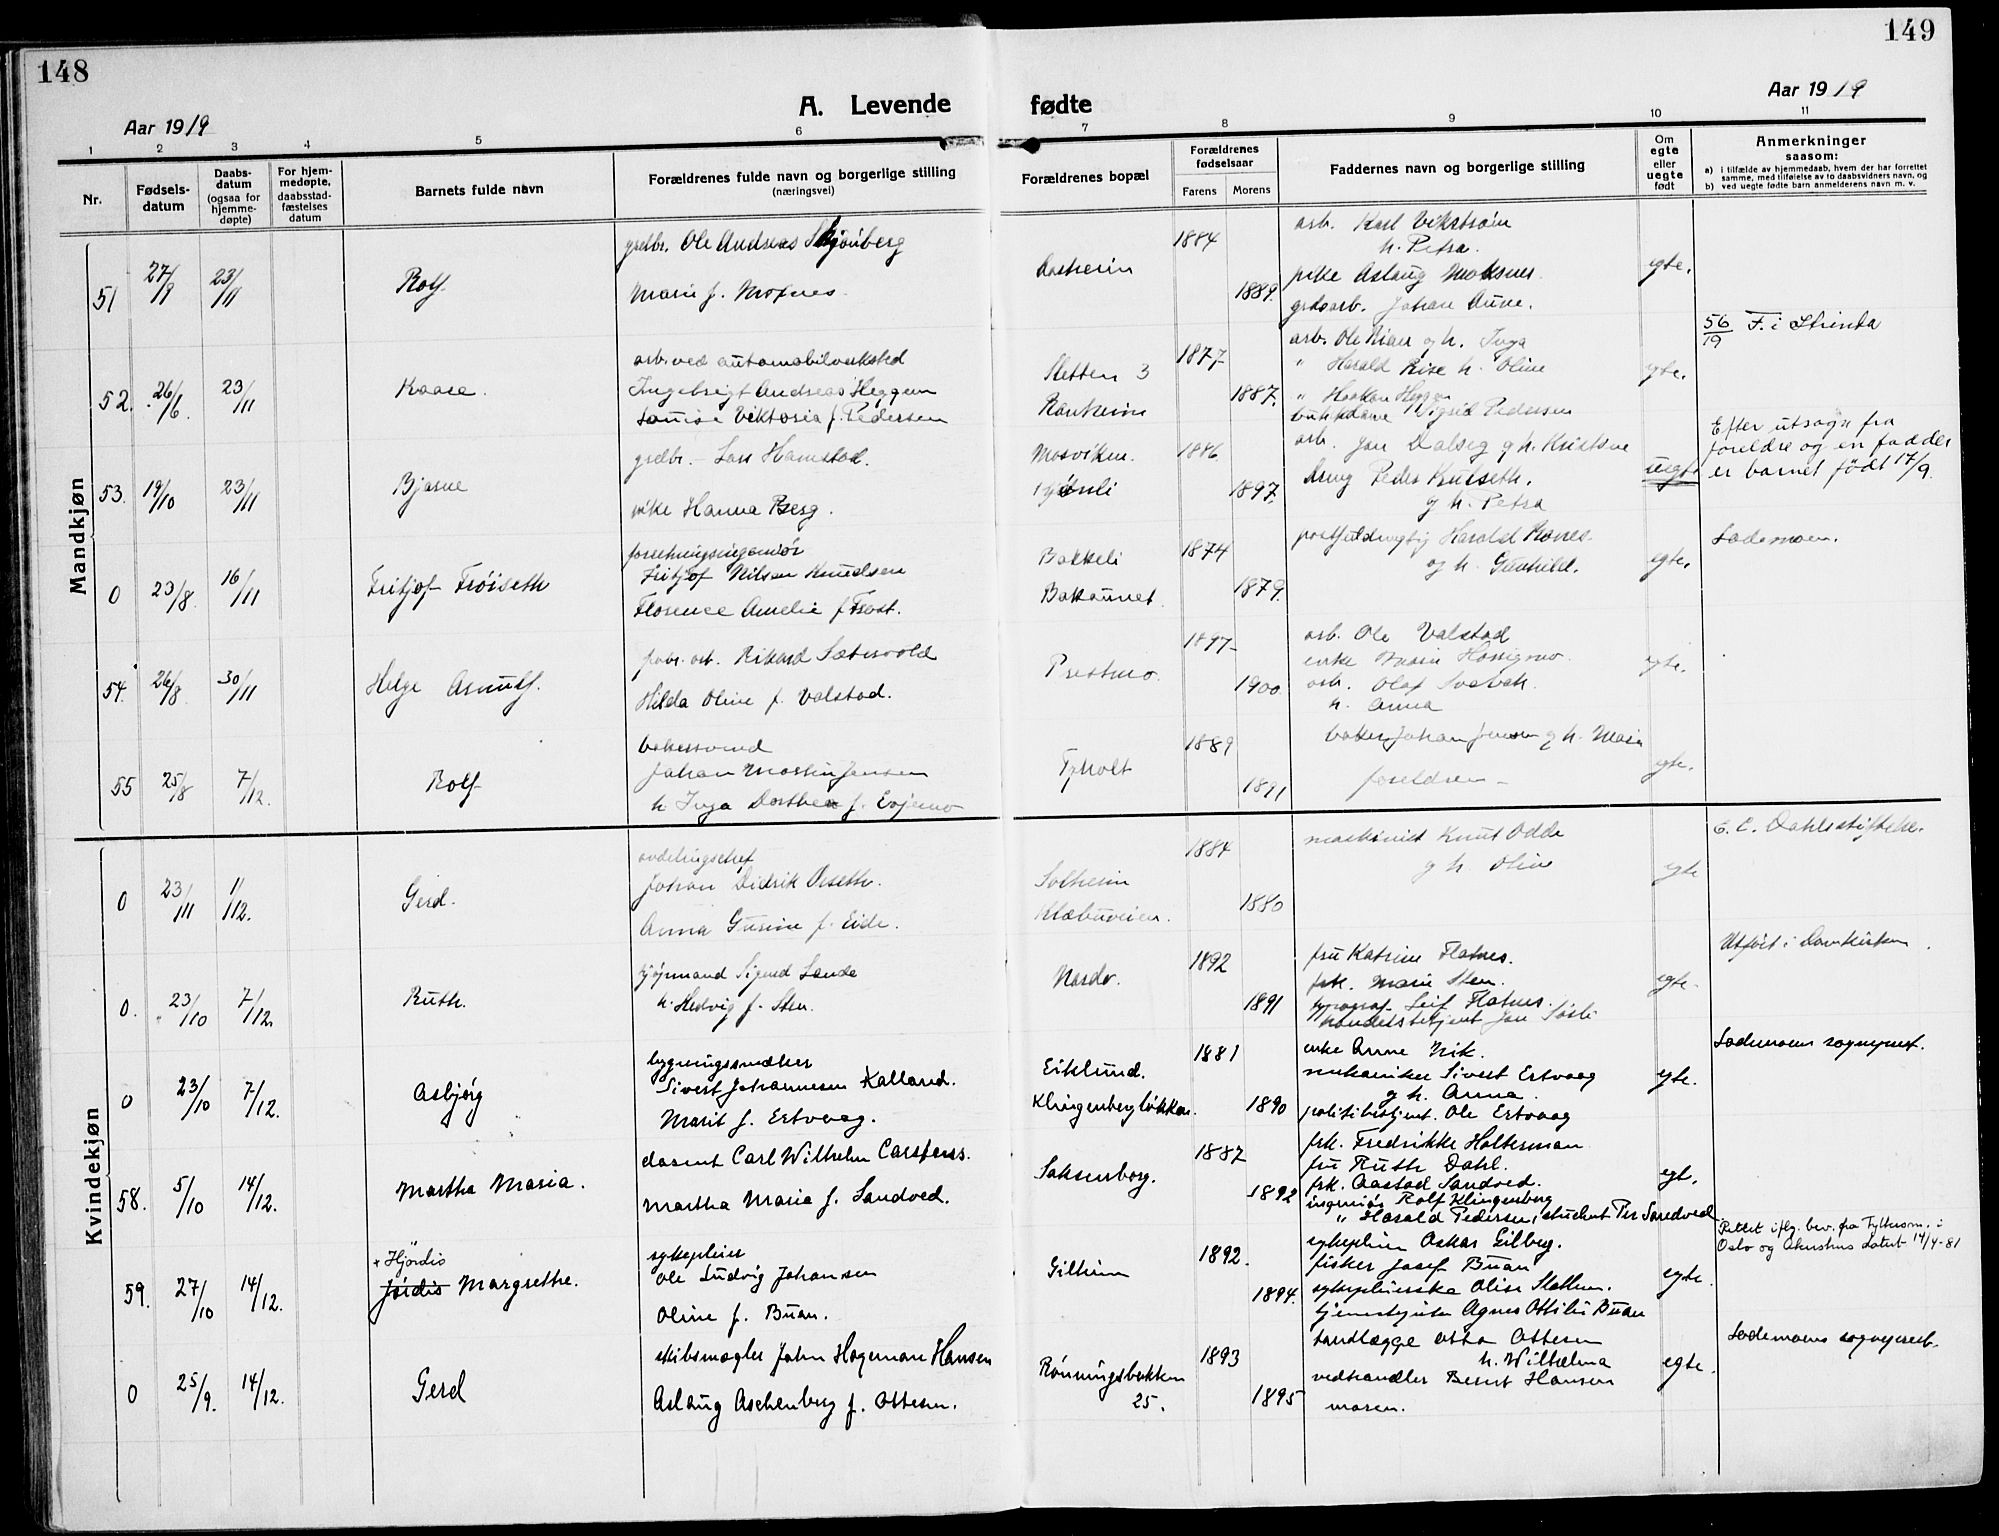 148
149
A. Levende fødte
Aar 1919
Aar 1919
1 2 3 4 5 6 7 8 9 10 11
Nr.
Fødsels-
datum
Daabs-
datum
(ogsaa for
hjemme-
døpte)
For hjem-
medøpte,
daabsstad-
fæstelses
datum
Barnets fulde navn
Forældrenes fulde navn og borgerlige stilling
(næringsvei)
Forældrenes bopæl
Forældrenes
fødselsaar
Farens Morens
Faddernes navn og borgerlige stilling
Om
egte
eller
uegte
født
Anmerkninger
saasom:
a) i tilfælde av hjemmedaab, hvem der har forrettet
samme, med tilføielse av to daabsvidners navn, og
b) ved uegte fødte barn anmelderens navn m. v.
Mandkjøn
51 27/9 23/11 Rolf
grdbr. Ole Andreas Skjønberg
Marie f. Moxnes
1884
1889.
arb. Karl Vikstrøm
h. Petra.
pike Aslaug Moksnes
grdsarb. Johan Aune.
egte.
52. 26/6 23/11 Kaare.
arb. ved automobilverksted
Ingebrigt Andreas Heggem
Louise Viktoria f. Pedersen
Sletten 3
Ranheim
1877
1887.
arb. Ole Riaer og h. Inga
" Harald Rise h. Oline
" Haakon Heggem
Sigrid Pedersen
egte.
56/19 F. i Strinda
53. 19/10 23/11 Bjarne
grdbr. - Lars Hamstad.
pike Hanna Berg.
Mosviken.
1886
1897.
arb. Jon Dalseg g h. Kristine
dreng Peder Kulseth.
g h. Petra
uegte
Efter utsagn fra
foreldre og en fadder
er barnet født 17/9.
0 23/8. 16/11 Fritjof Frøiseth
forretningsingeniør
Fritjof Nilsen Knudsen
Florence Amelie f. Frost.
Bakkeli
Bakkaunet.
1874
1879.
postfuldmegtig Harald Ranes.
og h. Gunhild.
egte.
Lademoen.
54. 26/8 30/11 Helge Arnulf.
fabr. arb. Rikard Sætervold
Hilda Oline f. Valstad.
Prestmo.
1897
1900.
arb. Ole Valstad
enke
arb. Olaf
h. Anna
egte.
55 25/8 7/12. Rolf
bakersvend
Johan Martin Jensen
h Inga Dorthea f. Evjemo
Tyholt
1889
1891
baker Johan Jensen g h. Maria
foreldren -
egte.
Kvindekjøn
0 23/11 1/12. Gerd.
avdelingschef
Johan Didrik Orseth.
Anna Gurine f. Eide.
Solheim
Klæbuveien.
1884
1880
maskinist Knut Odde
g h. Oline
egte
E. C. Dahls stiftelse.
0. 23/10 7/12. Ruth.
Sigurd Sande
h. Hedvig f. Sten.
Nardo.
1892
1891
fru Katrine Flatnes.
frk. Marie Sten.
typograf. Leif Flatnes.
handelsbetjent Jon
egte.
Utført i Domkirken.
0 23/10 7/12. Asbjørg
bygningssnekker
Sivert Johannesen Kalland.
Marit f. Ertvaag.
Eiklund.
Klingenbergløkken.
1881
1890
enke Anne Vik.
mekaniker Sivert Ertvaag
g h. Anna.
politibetjent. Ole Ertvaag
egte.
Lademoens sognepr.
58. 5/10 14/12. Martha Maria.
dosent Carl Wilhelm Carstens.
Martha Maria f. Sandved.
Saksenborg.
1887
1892
frk. Fredrikke Holterman
fru Ruth Dahl.
frk. Aastad Sandved.
ingeniør Rolf Klingenberg
" Harald Pedersen, student Per Sandved
egt.
59. 27/10 14/12. + Hjørdis
Jørdis Margrethe.
sykepleier
Ole Ludvig Johansen
Oline f. Buan.
Gilheim
1892.
1894.
sykepleier Oskar Gilberg.
fisker Josef Buan
sykepleierske Olise
tjenestepike Agnes Ottilie Buan
egte.
Rettet iflg. bev. fra Fylkesm. i
Oslo og Akershus datert 14/4-81
0 25/9. 14/12. Gerd
skibsmegler John Hageman Hansen
Aslaug Aschenberg f. Ottesen.
Rønningsbakken
25.
1893
1895
tandlæge Otto Ottesen
h. Wilhelma
vedhandler Bernt Hansen
Maren.
egte.
Lademoens sogneprest.